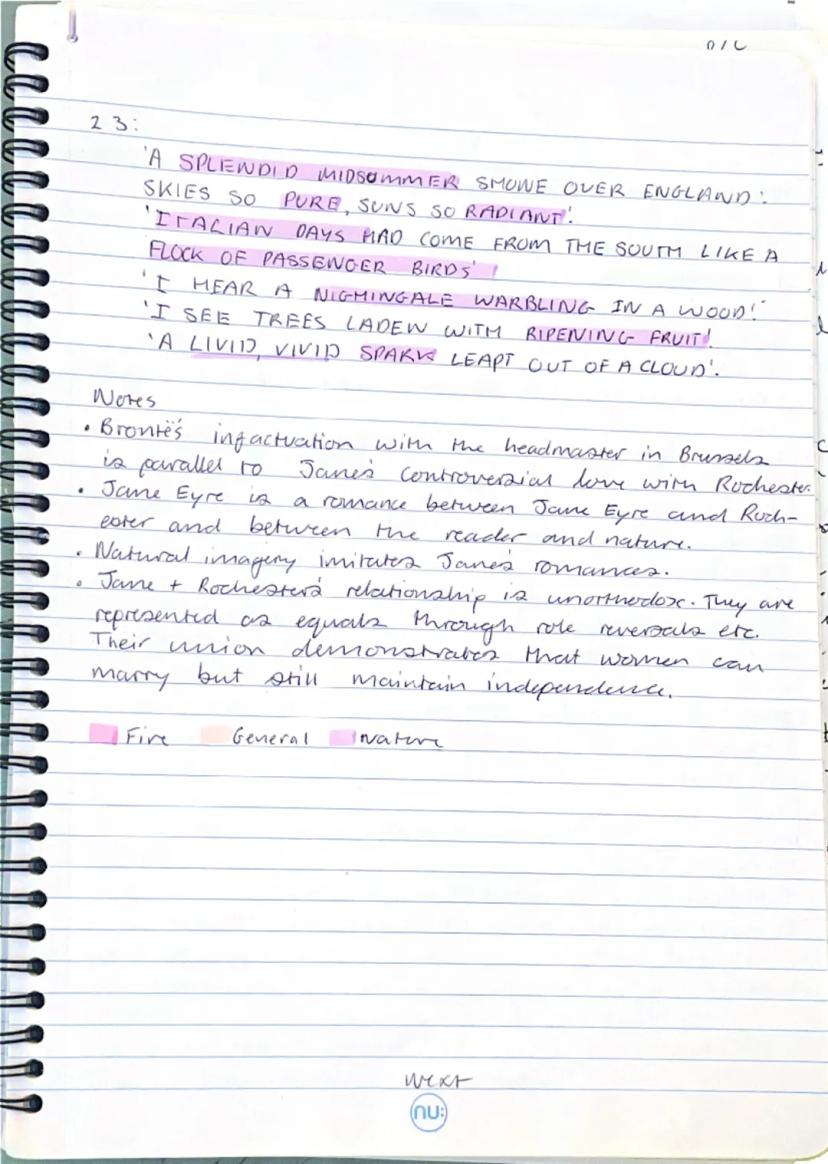 23:
'A SPLENDID MIDSUMMER SHONE OVER ENGLAND:
SKIES SO PURE, SUNS SO RADIANT'.
'ITALIAN DAYS HAD COME FROM THE SOUTH LIKE A
FLOCK OF PASSENGER BIRDS'
'I HEAR A NIGHINGALE WARBLING IN A WOOD!'
'I SEE TREES LADEN WITH RIPENING FRUIT'.
'A LIVID, VIVID SPARK LEAPT OUT OF A CLOUD'.
Notes
• Brontë's infactuation with the headmaster in Brussels
is parallel to Jane's controversial love with Rochester.
• Jane Eyre is a romance between Jane Eyre and Roch-
ester and between the reader and nature.
• Natural imagery imitates Jane's romances.
• Jane + Rochester's relationship is unorthodox. They are
represented as equals through role reversals etc.
Their union demonstrates that women can
marry but still maintain independence.
Fire General Nature
Next
nu: